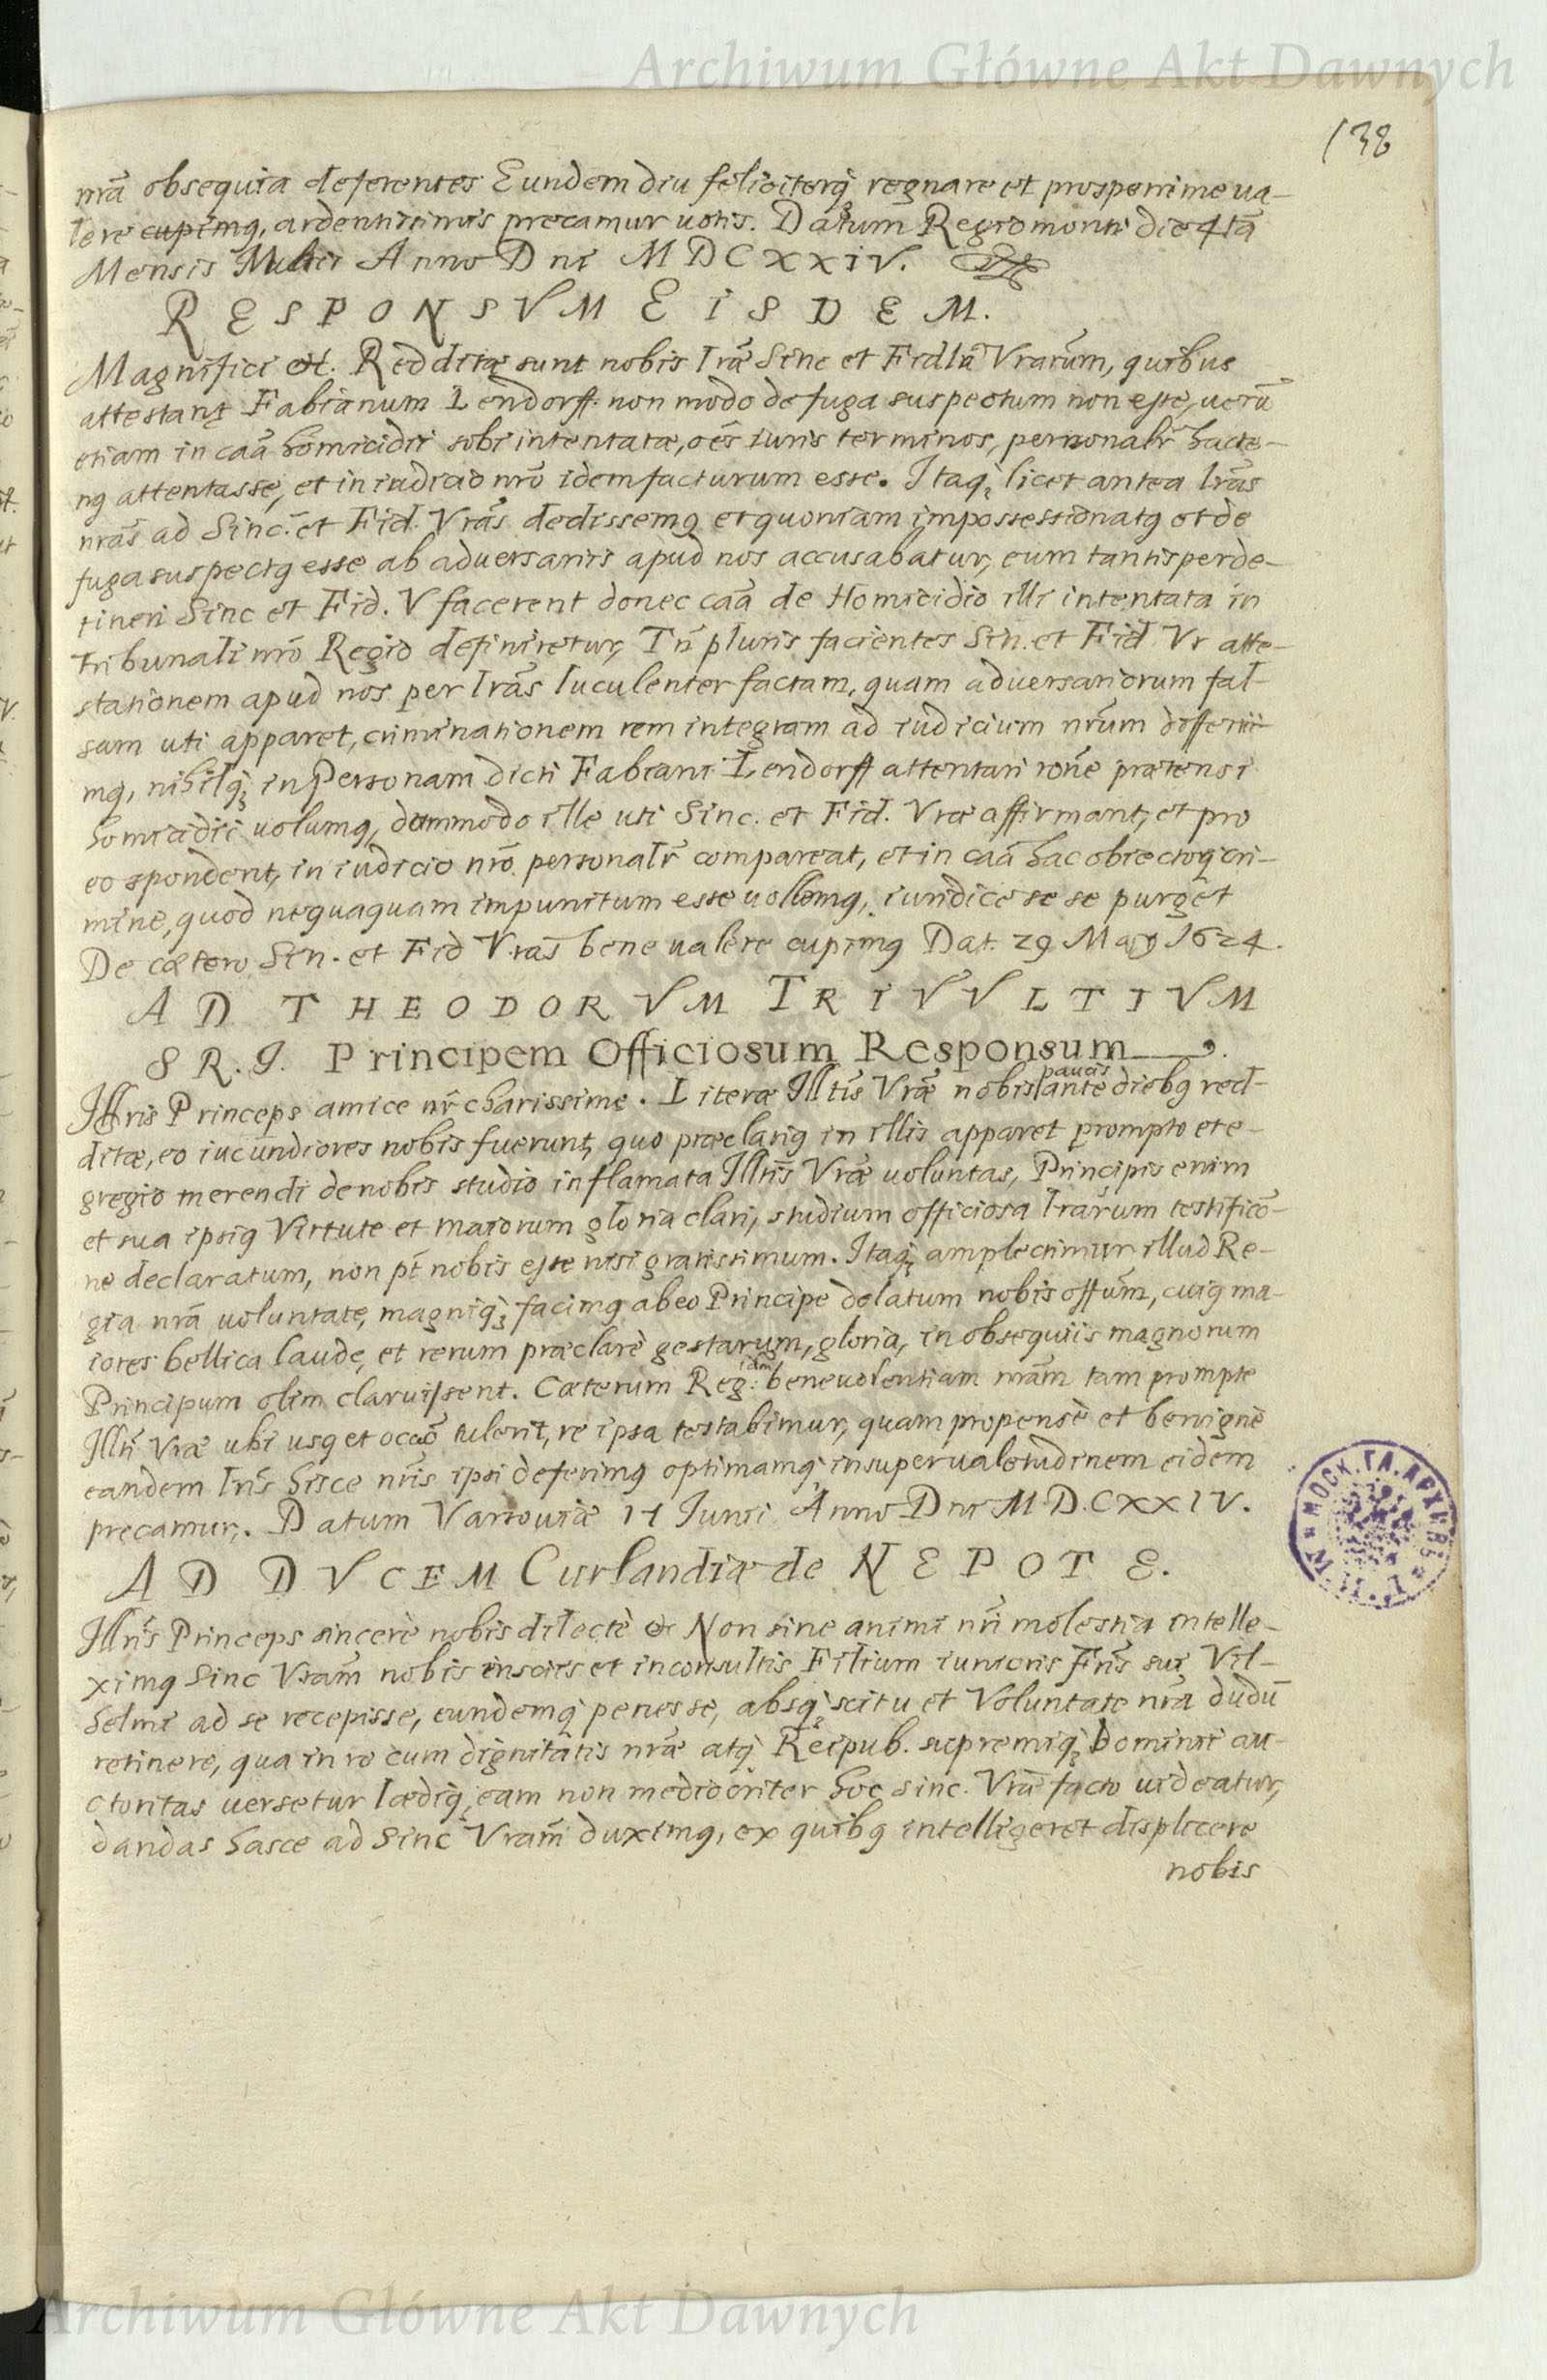 Archiwum Główne Akt Dawnych
138
nrã obsequia deferentes Eundem diu feliciterq́ regnare et prosperrime ua-
lere cupimꝗ, ardentissimis precamur uotis. Datum Regiomonti die 4ta
Mensis Anno Dni MDCXXIV.
RESPONSVM EISDEM.
Magnifici etc. Redditæ sunt nobis lræ Sinc et Fidlũ Vrarũm, quibus
attestantꝗ Fabianum Lendorff non modo de fuga suspectum non esse, uerũ
etiam in caã homicidii sibi intentatæ, oẽs iuris terminos, personalr̃ hacte-
nꝗ attentasse, et in iudicio nrõ idem facturum esse. Itaq́ licet antea lrãs
nrãs ad Sinc. et Fid. Vrãs dedissemꝗ et quoniam impossessionatꝗ et de
fuga suspectꝗ esse ab adversariis apud nos accusabatur, eum tantisper de-
tineri Sinc et Fid. V facerent donec caã de Homicidio illi intentata in
tribunali nrõ Regio definiretur, Tñ pluris facientes Sin. et Fid Vr atte-
stationem apud nos per lrãs luculenter factam, quam adversariorum fal-
sam uti apparet, criminationem rem integram ad iudicium nrũm differri
mꝗ, nihilq́ in Personam dicti Fabiani Lendorff attentari rõne prætensi
homicidii uolumꝗ, dummodo ille uti Sinc. et Fid. Vræ affirmant, et pro
eo spondent, in iudicio nrõ personalr̃ compareat, et in caã hac obiectoq́ cri-
mine, quod nequaquam impunitum esse uollemꝗ, iuridice se se purget
De cætero Sin. et Fid Vrãs bene ualere cupimꝗ Dat. 29 Maÿ 1624.
AD THEODORVM TRIVVLTIVM
SR.I. Principem Officiosum Responsum.
Illris Princeps amice nr̃ charissime. Literæ Illtis̃ Vræ̃ nobis paucis ante diebꝗ red-
ditæ, eo iucundiores nobis fuerunt, quo præclariꝗ in illis apparet prompto et e-
gregio merendi de nobis studio inflamata Illtis̃ Vræ̃ uoluntas, Principis enim
et sua ipsiꝗ Virtute et maiorum gloria clari, studium officiosa lrarũm testificõ-
ne declaratum, non pt̃ nobis esse nisi gratissimum. Itaq́ amplectimur illud Re-
gia nrã uoluntate, magniq́ facimꝗ ab eo Principe delatum nobis offũm, cuiꝗ ma-
iores bellica laude, et rerum præclarè gestarum, gloria, in obsequiis magnorum
Principum olim claruissent. Cæterum Reg: iam benevolentiam nrãm tam prompte
Illti Vræ ubi usꝗ et occaõ tulerit, re ipsa testabimur, quam propensè et benignè
eandem lris̃ hisce nris̃ ipsi deferimꝗ optimamq́ insuper ualetudinem eidem
precamur,. Datum Varsouiæ 11 Junii Anno Dni M.D.CXXIV.
AD DVCEM Curlandiæ de NEPOTE.
Illris̃ Princeps sincerè nobis dilectè etc Non sine animi nri̇̃ molestia intelle-
ximꝗ Sinc Vram̃ nobis insciis et inconsultis Filium iunioris Fris̃ sui Vil-
helmi ad se recepisse, eundemq́ penes se, absq́ scitu et Voluntate nrã dudũ
retinere, qua in re cum dignitatis nræ̃ atq́ Reipub. supremiq́ Dominii au-
ctoritas uersetur lædiq́, eam non mediocriter hoc sinc. Vræ̃ facto uideatur,
dandas hasce ad Sinc Vram̃ duximꝗ, ex quibꝗ intelligeret displicere
nobis
Archiwum Główne Akt Dawnych